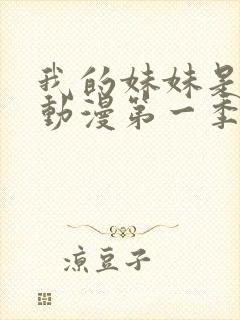 我的妹妹是
動漫第一季
涼豆子